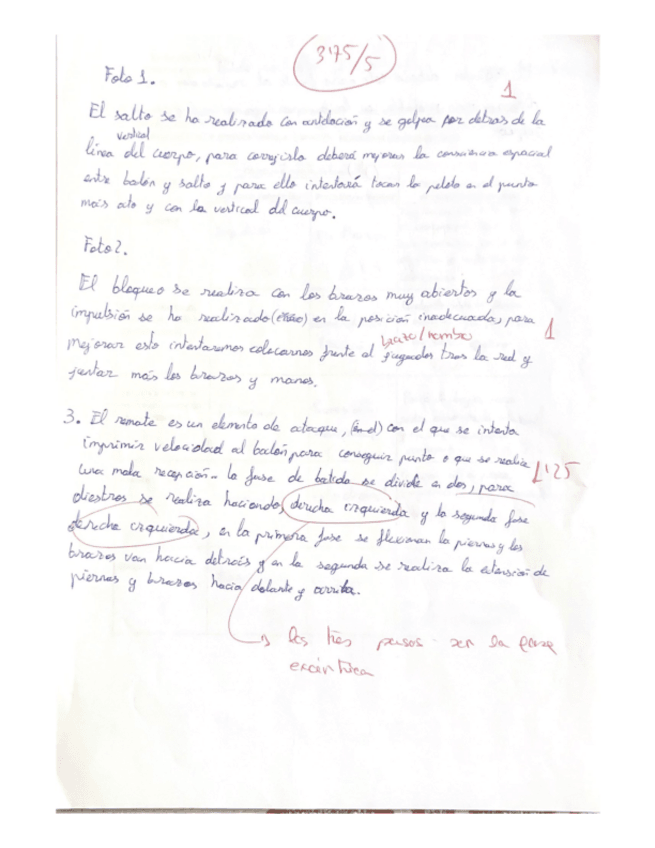 3'75/5
Foto 1.
1
El salto se ha realizado con antelación y se golpea por detras de la
vertical
línea del cuerpo, para corregirlo deberá mejorar la consciencia espacial
entre balón y salto y para ello intentará tocar la pelota en el punto
más alto y con la vertical del cuerpo.
Foto 2.
El bloqueo se realiza con los brazos muy abiertos y la
impulsión se ha realizado en la posición inadecuada, para
1
brazo/hombro
mejorar esto intentaremos colocarnos frente al jugador tras la red y
juntar más los brazos y manos.
3. El remate es un elemento de ataque, con el que se intenta
imprimir velocidad al balón para conseguir punto o que se realice
1'25
una mala recepción. la fase de batida se divide en dos, para
diestros se realiza haciendo, derecha izquierda y la segunda fase
derecha izquierda, en la primera fase se flexionan la piernas y los
brazos van hacia detrás y en la segunda se realiza la extensión de
piernas y brazos hacia delante y arriba.
los tres pasos son la fase
excéntrica